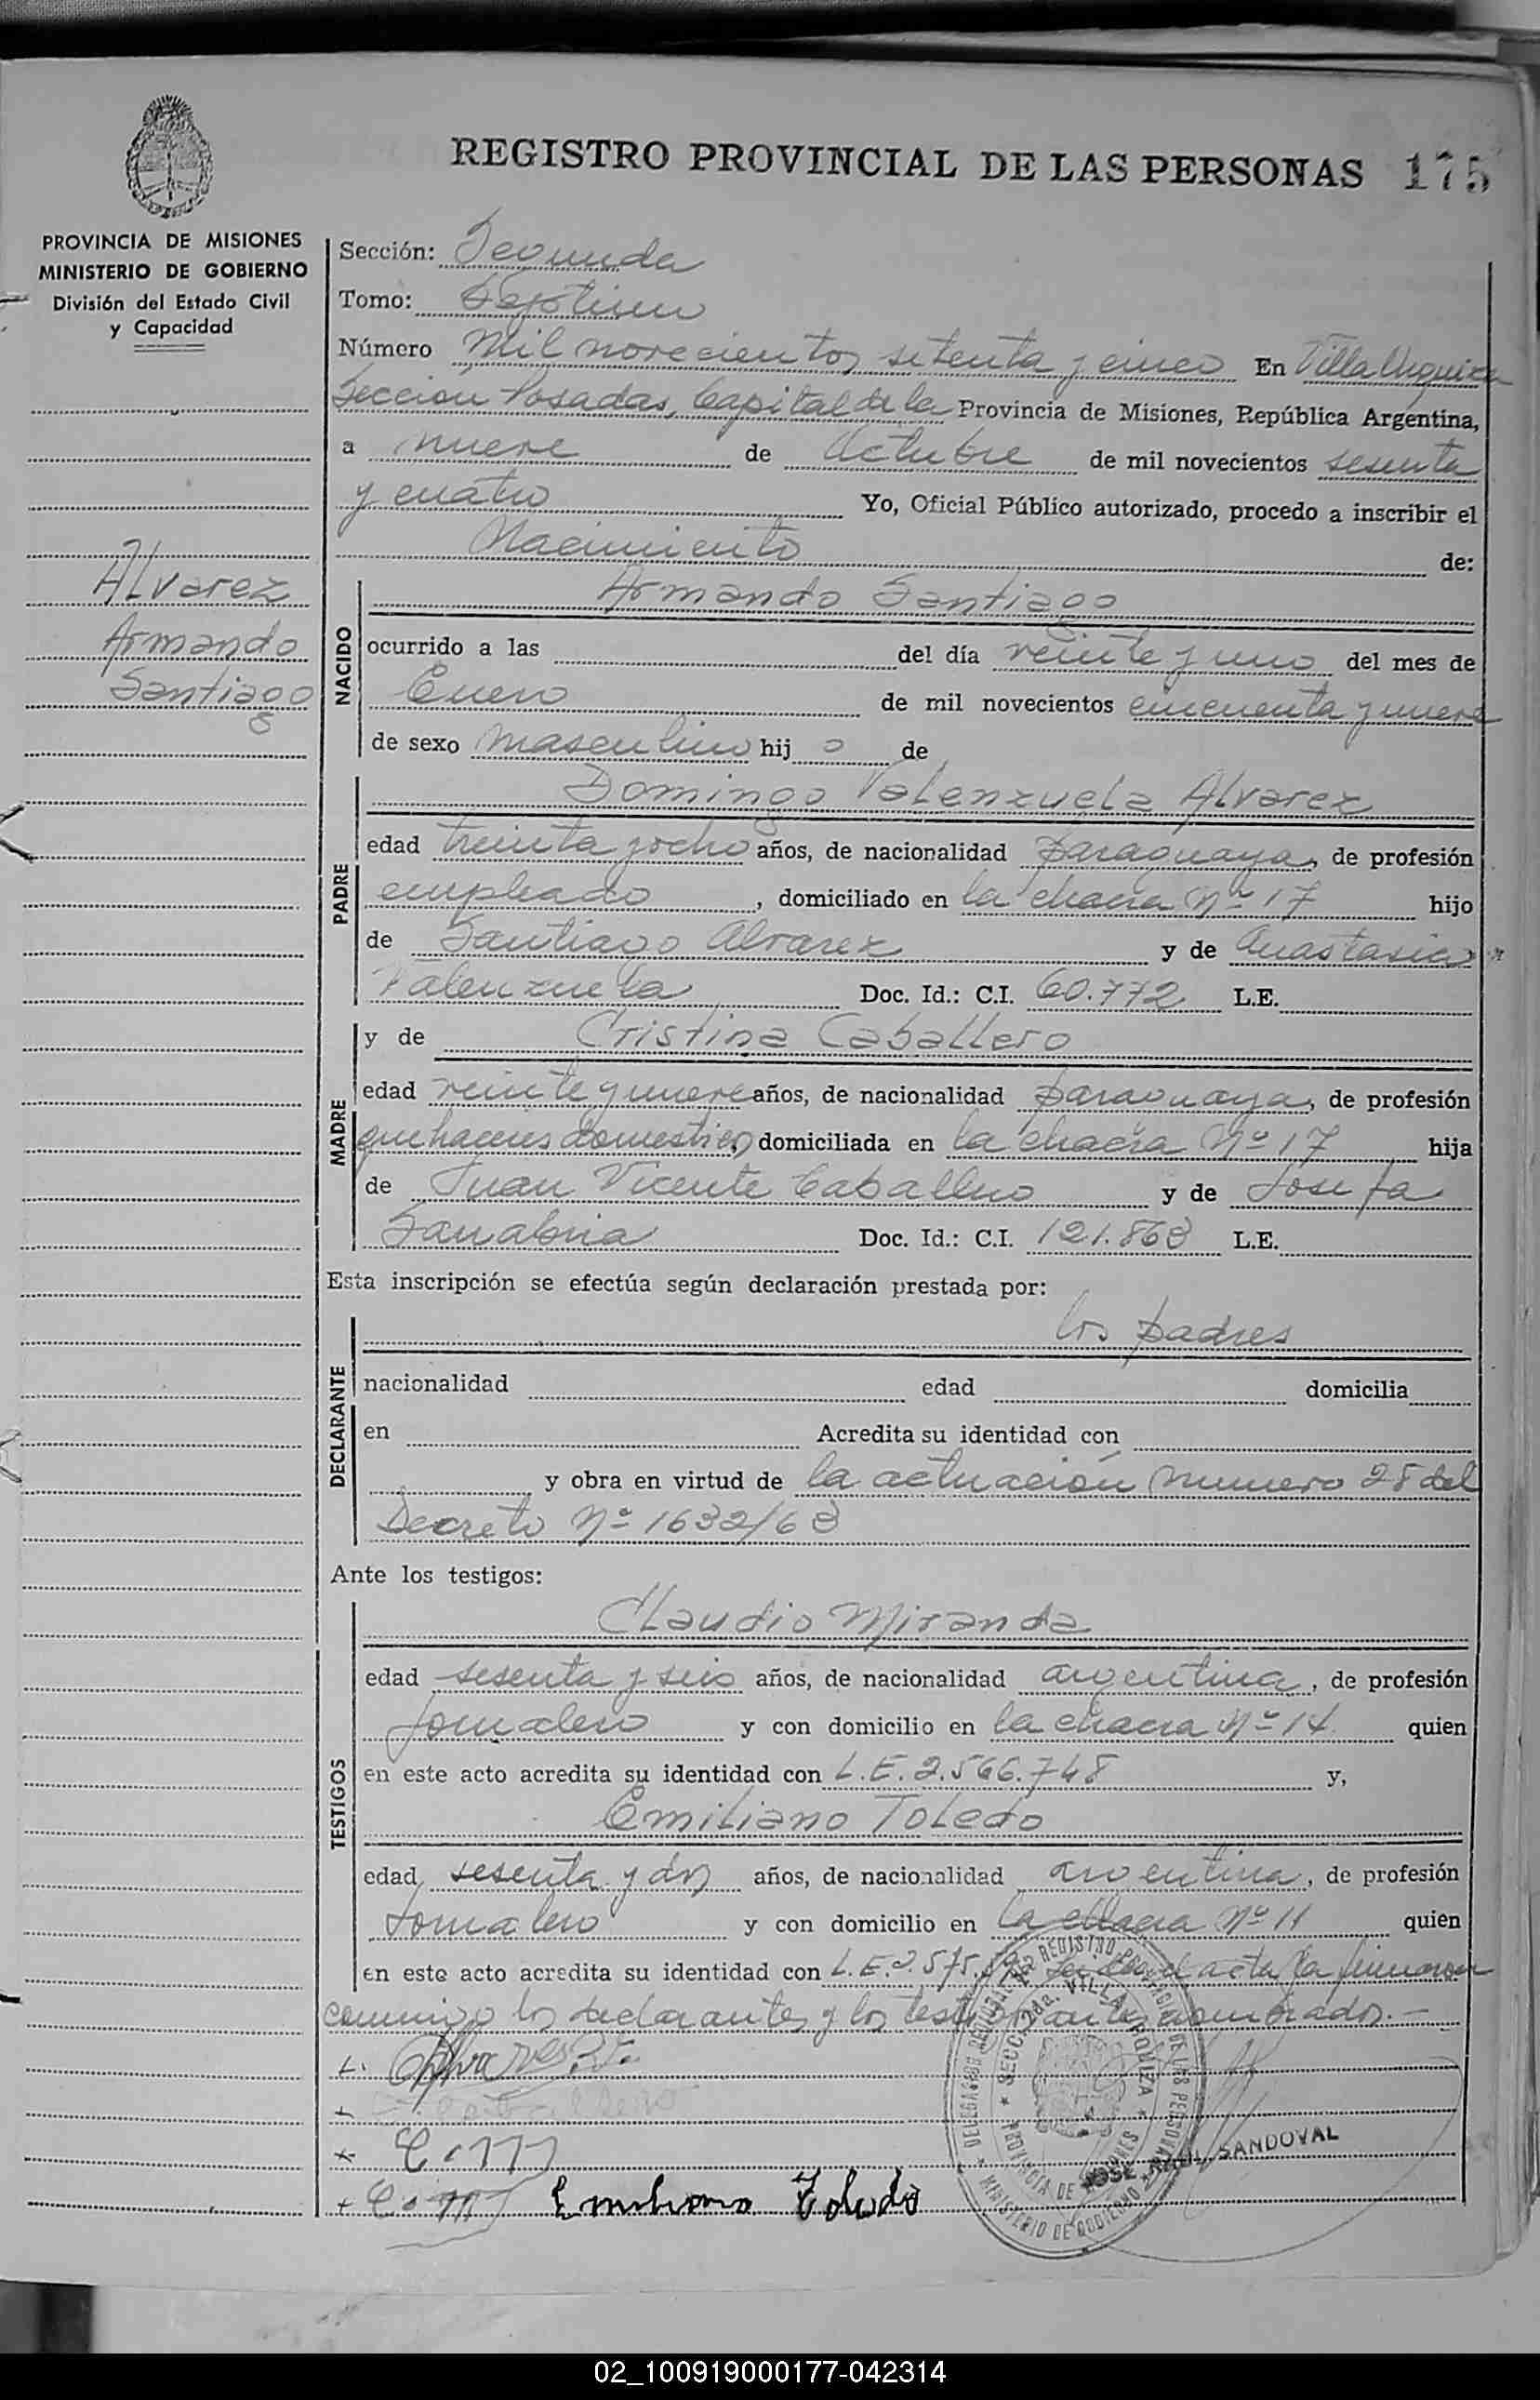 REGISTRO PROVINCIAL DE LAS PERSONAS 175
PROVINCIA DE MISIONES
MINISTERIO DE GOBIERNO
División del Estado Civil
y Capacidad
Alvarez
Armando
Santiago
Sección: Segunda
Tomo: Septimo
Número Mil novecientos setenta y cinco En Villa Urquiza
Sección Posadas, Capital de la Provincia de Misiones, República Argentina,
a nueve de Octubre de mil novecientos sesenta
y cuatro Yo, Oficial Público autorizado, procedo a inscribir el
Nacimiento de:
NACIDO
Armando Santiago
ocurrido a las del día veinte y uno del mes de
Enero de mil novecientos cincuenta y nueve
de sexo masculino hij o de
PADRE
Domingo Valenzuela Alvarez
edad treinta y ocho años, de nacionalidad paraguaya, de profesión
empleado, domiciliado en la chacra Nº 17 hijo
de Santiago Alvarez y de Anastasia
Valenzuela Doc. Id.: C.I. 60.772 L.E.
MADRE
y de Cristina Caballero
edad veinte y nueve años, de nacionalidad paraguaya, de profesión
quehaceres domesticos, domiciliada en la chacra Nº 17 hija
de Juan Vicente Caballero y de Josefa
Sanabria Doc. Id.: C.I. 121.863 L.E.
Esta inscripción se efectúa según declaración prestada por:
DECLARANTE
los padres
nacionalidad edad domicilia
en Acredita su identidad con
y obra en virtud de la actuación numero 28 del
Decreto Nº 1632/63
Ante los testigos:
TESTIGOS
Claudio Miranda
edad sesenta y seis años, de nacionalidad argentina, de profesión
Jornalero y con domicilio en la chacra Nº 14. quien
en este acto acredita su identidad con L.E. 2.566.748 y,
Emiliano Toledo
edad, sesenta y dos años, de nacionalidad argentina, de profesión
Jornalero y con domicilio en la chacra Nº 11 quien
en este acto acredita su identidad con L.E. 2.575. el acta la firmaron
conmigo los declarantes y los testigos antes nombrados.-
Alvarez
Caballero
C. M
Emiliano Toledo
SECC. 2da. VILLA URQUIZA
PROVINCIA DE MISIONES
MINISTERIO DE GOBIERNO
JOSE RAUL SANDOVAL
02_100919000177-042314